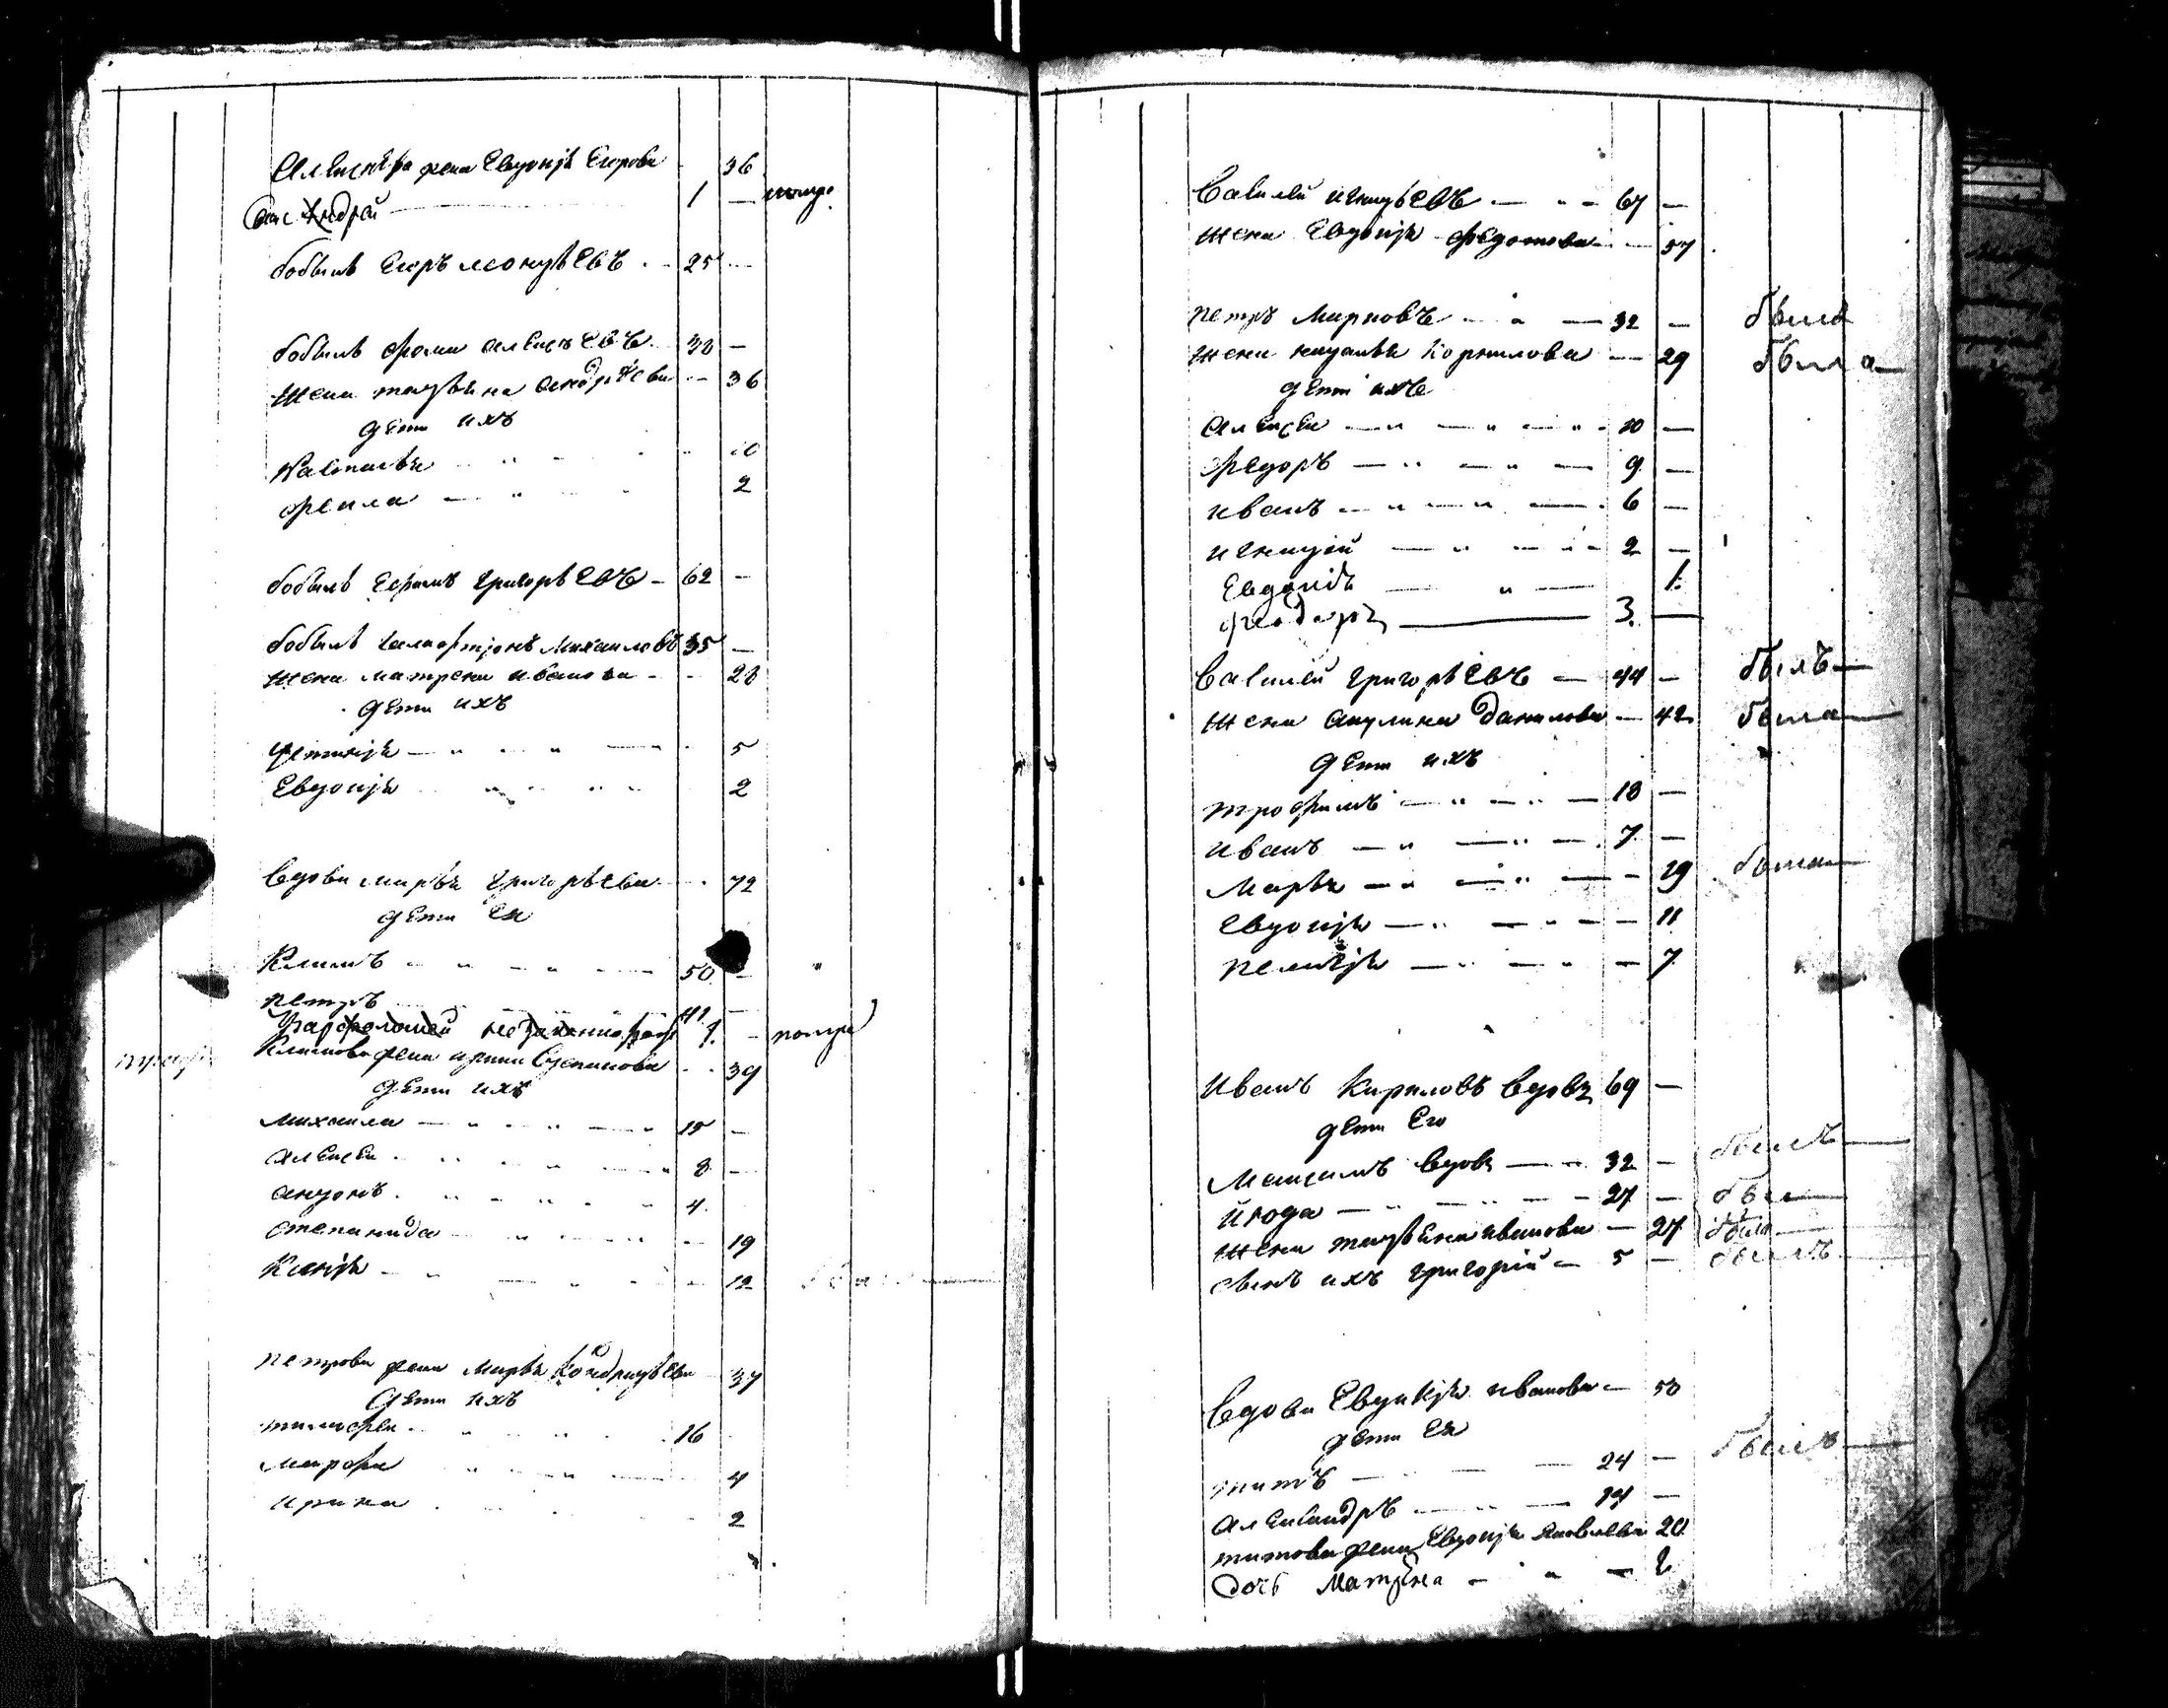 Алексѣя жена Евдокія Егорова 36
Сынъ Андрей 1 — померъ
бобыль Егоръ леонтьевъ 25 —
бобыль фома алексѣевъ 38 —
жена татьяна андрѣева — 36
дети ихъ
Наталья 10
фекла — 2
бобыль Ефимъ григорьевъ — 62 —
бобыль Михаиловъ 35 —
жена матрена иванова — 28
дети ихъ
фетинія — 5
Евдокія 2
вдова марья григорьева 72
дети ея
Климъ 50 —
петръ 41 —
Варфоломей 1 — померъ
Климова жена ирина Степанова 39
дети ихъ
михаила — 15 —
алексеи 8 —
антонъ 4
степанида 19
Ксенія — 12
петрова жена марья Кондратьева 37
дети ихъ
тимофеи 16
марфа 4
ирина 2
Василей игнатьевъ — 67 —
жена Евдокія федотова — 57
петръ марковъ — 32 — былъ
жена наталья Корнилова — 29 была
дети ихъ
алексеи — 10 —
федоръ — 9 —
иванъ — 6 —
игнатей — 2 —
Евдокія — 1
феодоръ — 3 —
Василей григорьевъ — 44 — былъ
жена акулина данилова — 42 была
дети ихъ
трофимъ — 18 —
иванъ — 7 —
марья — 19 была
евдокія — 11
пелагѣя — 7
иванъ Кириловъ вдовъ 69 —
дети Его
максимъ вдовъ — 32 — былъ
27 — былъ
жена татьяна иванова — 27 была
сынъ ихъ григорій — 5 — былъ
вдова Евдокія иванова — 50
дети ея
титъ — 24 — былъ
александръ — 14 —
титова жена Евдокія Яковлева 20
дочь матрена — 2